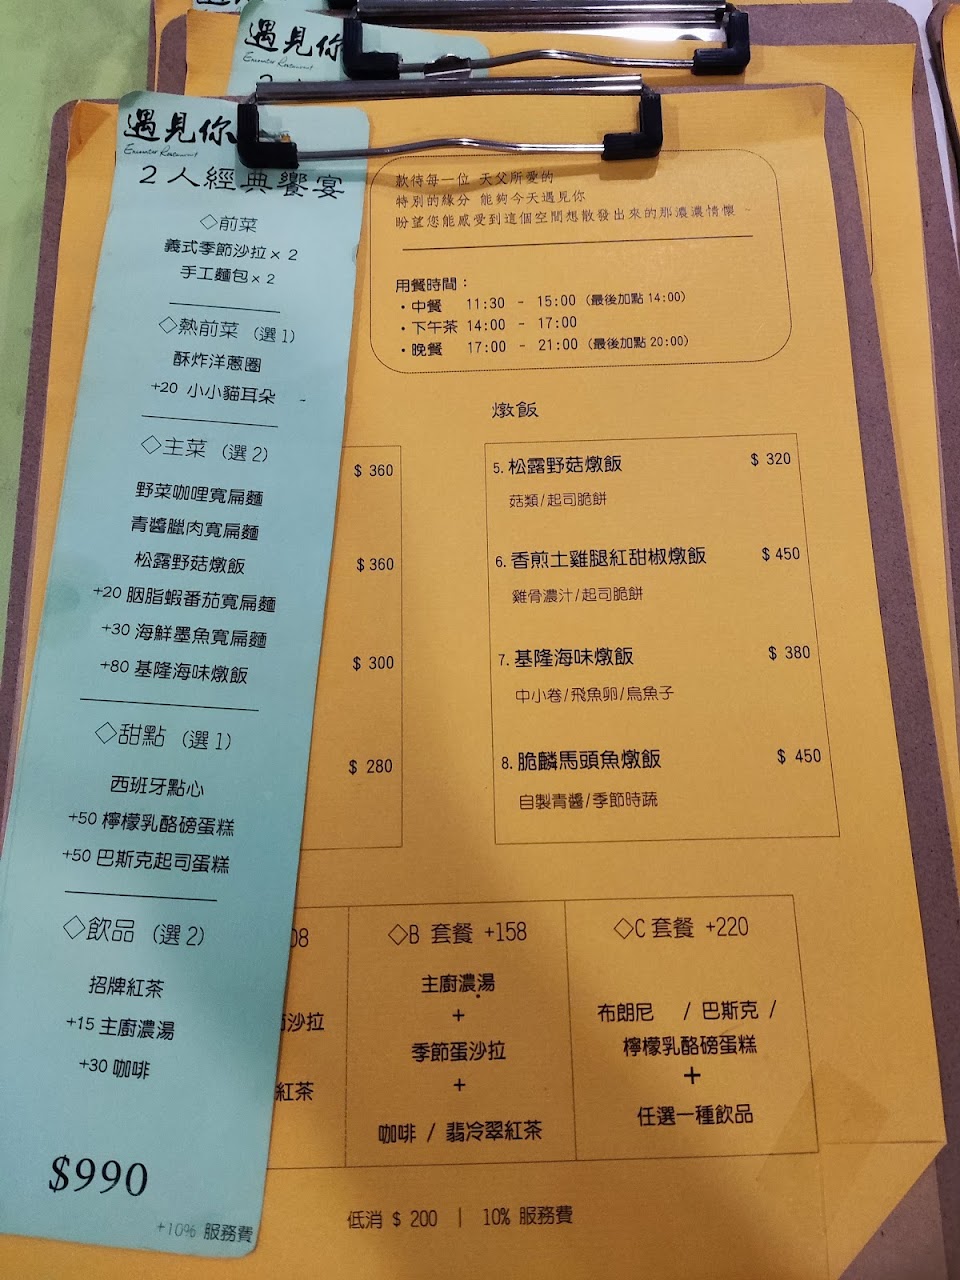 遇見你
遇見你
Encounter Restaurant
2人經典饗宴
◇前菜
義式季節沙拉×2
手工麵包×2
◇熱前菜 (選1)
酥炸洋蔥圈
+20 小小貓耳朵
◇主菜 (選2)
野菜咖哩寬扁麵
青醬臘肉寬扁麵
松露野菇燉飯
+20 胭脂蝦番茄寬扁麵
+30 海鮮墨魚寬扁麵
+80 基隆海味燉飯
◇甜點 (選1)
西班牙點心
+50 檸檬乳酪磅蛋糕
+50 巴斯克起司蛋糕
◇飲品 (選2)
招牌紅茶
+15 主廚濃湯
+30 咖啡
$990
+10% 服務費
款待每一位 天父所愛的
特別的緣分 能夠今天遇見你
盼望您能感受到這個空間想散發出來的那濃濃情懷 ~
用餐時間：
・中餐 11:30 - 15:00 (最後加點 14:00)
・下午茶 14:00 - 17:00
・晚餐 17:00 - 21:00 (最後加點 20:00)
$ 360
$ 360
$ 300
$ 280
燉飯
5. 松露野菇燉飯 $ 320
菇類/起司脆餅
6. 香煎土雞腿紅甜椒燉飯 $ 450
雞骨濃汁/起司脆餅
7. 基隆海味燉飯 $ 380
中小卷/飛魚卵/烏魚子
8. 脆麟馬頭魚燉飯 $ 450
自製青醬/季節時蔬
08
沙拉
紅茶
◇B 套餐 +158
主廚濃湯
+
季節蛋沙拉
+
咖啡 / 翡冷翠紅茶
◇C 套餐 +220
布朗尼 / 巴斯克 /
檸檬乳酪磅蛋糕
+
任選一種飲品
低消 $ 200 | 10% 服務費